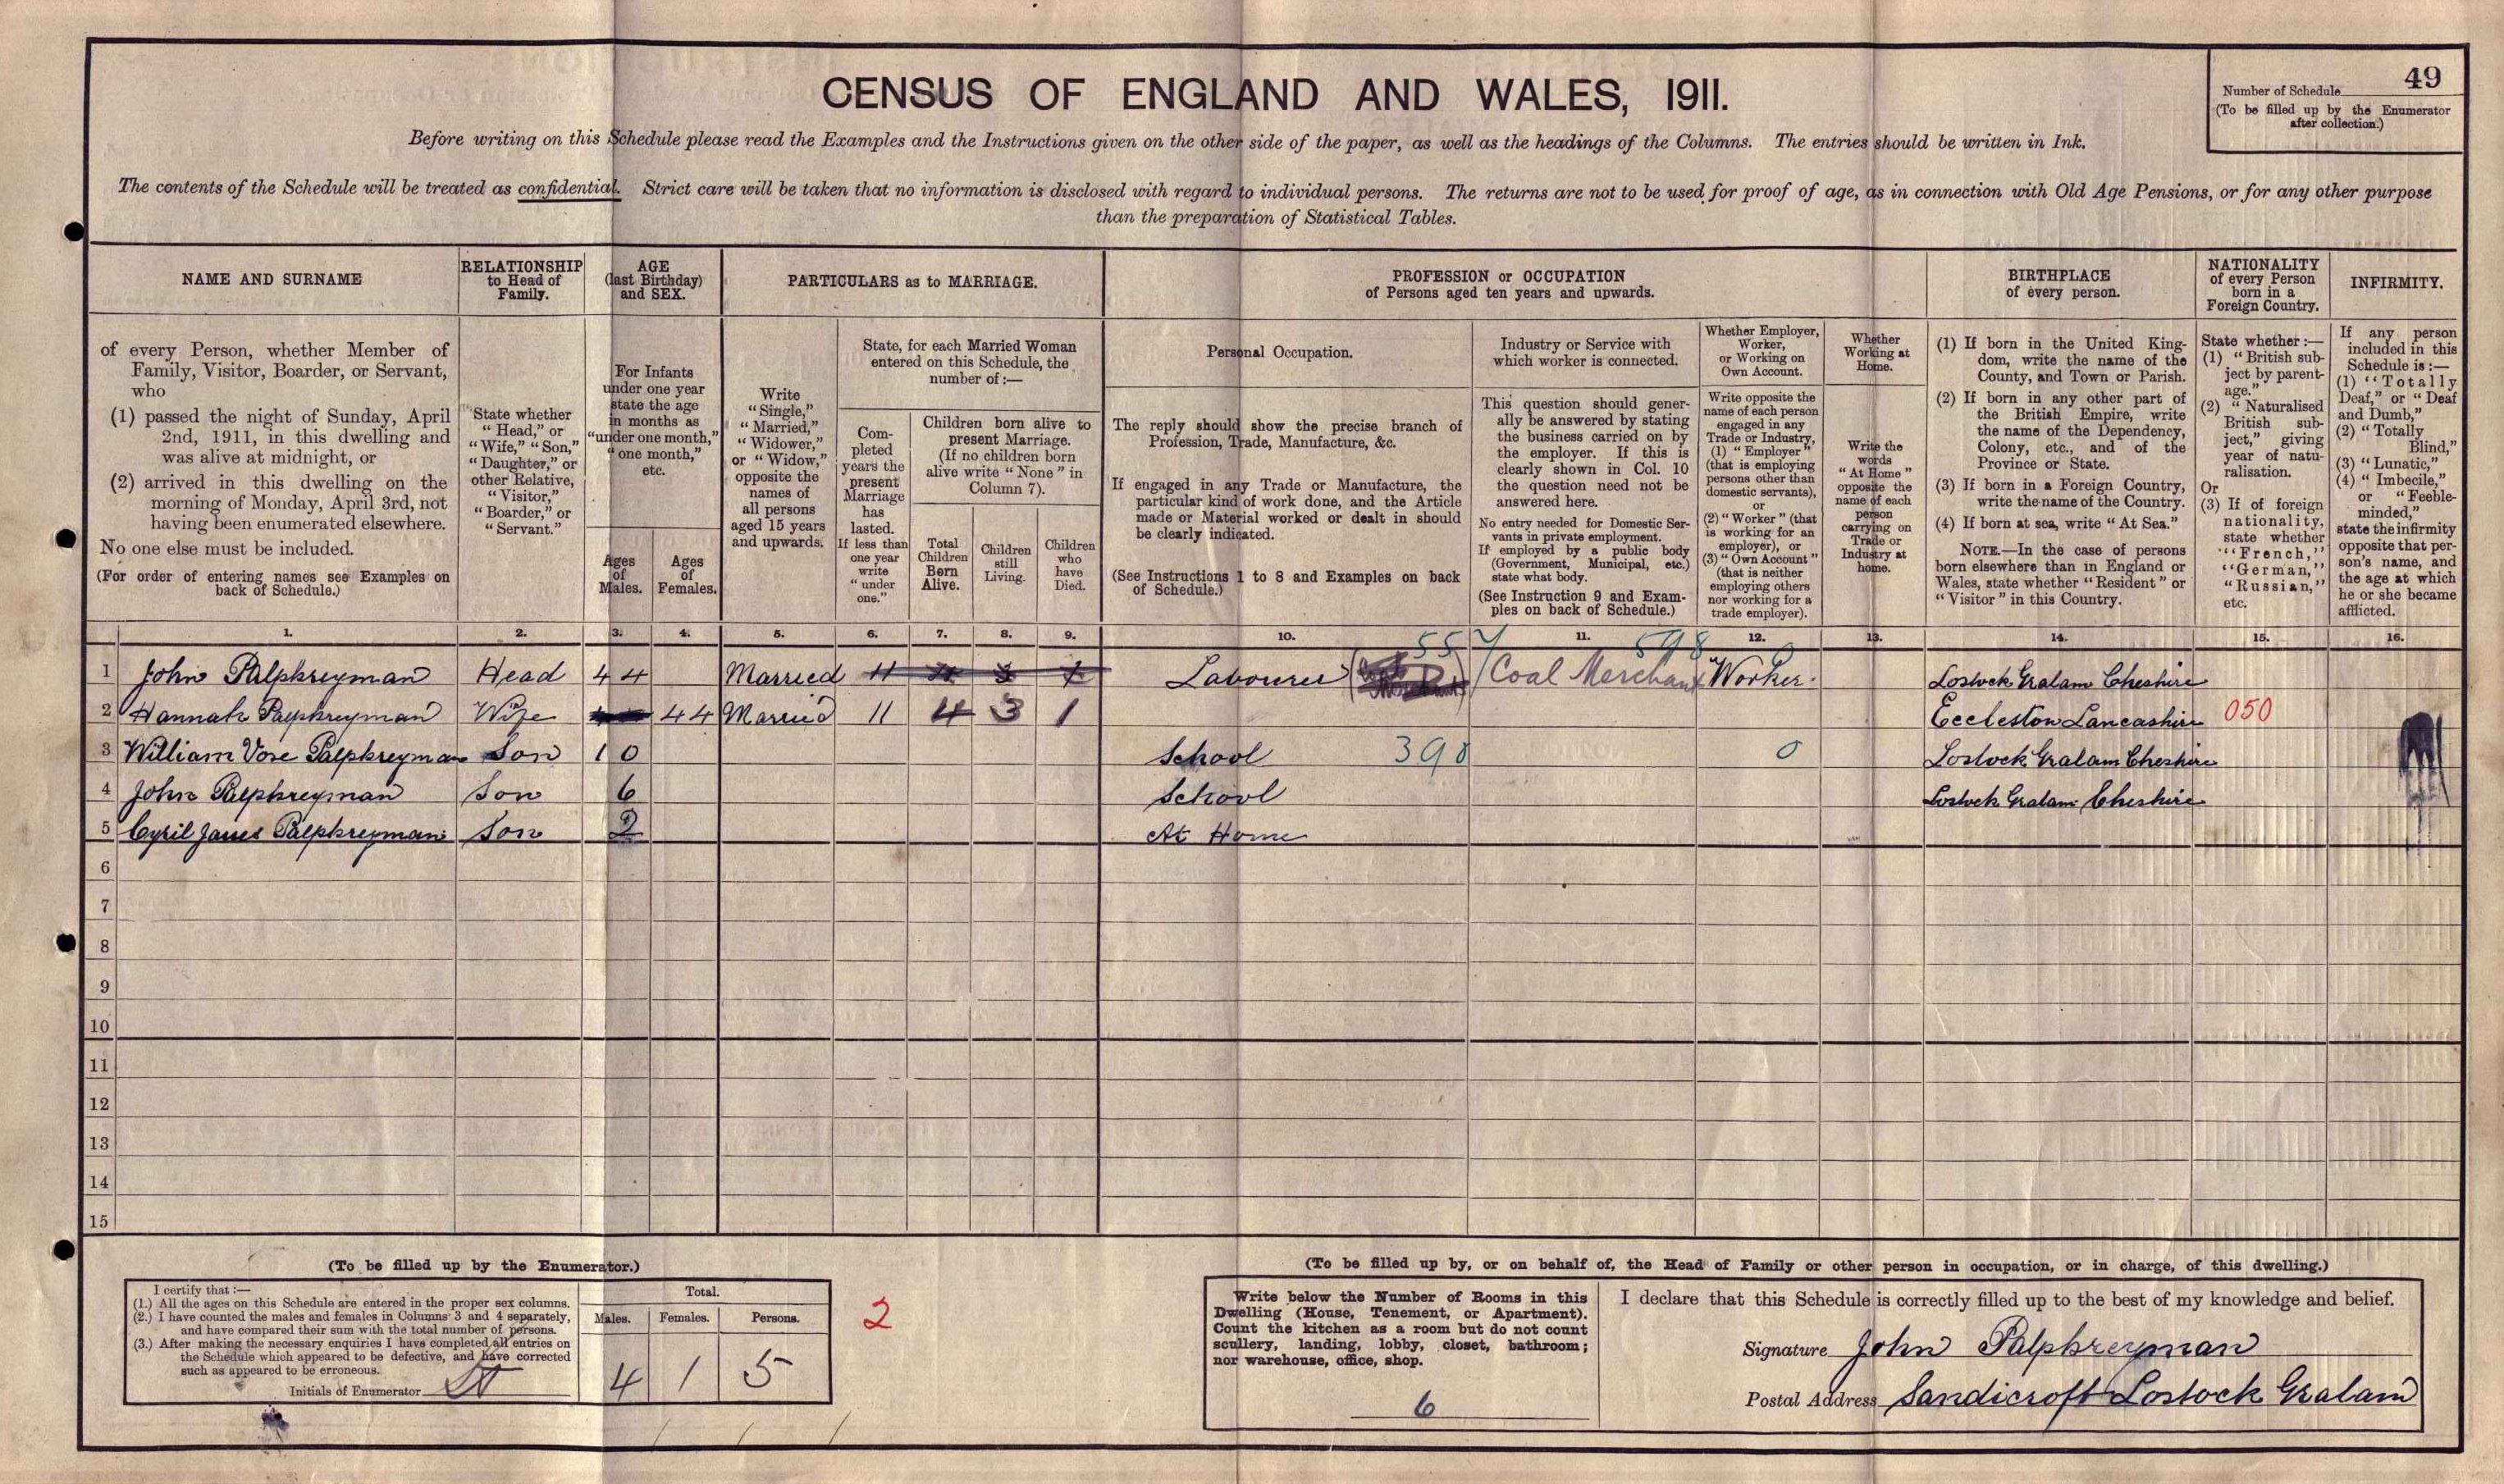 CENSUS OF ENGLAND AND WALES, 1911.
Number of Schedule 49
(To be filled up by the Enumerator
after collection.)
Before writing on this Schedule please read the Examples and the Instructions given on the other side of the paper, as well as the headings of the Columns. The entries should be written in Ink.
The contents of the Schedule will be treated as confidential. Strict care will be taken that no information is disclosed with regard to individual persons. The returns are not to be used for proof of age, as in connection with Old Age Pensions, or for any other purpose
than the preparation of Statistical Tables.
NAME AND SURNAME
of every Person, whether Member of
Family, Visitor, Boarder, or Servant,
who
(1) passed the night of Sunday, April
2nd, 1911, in this dwelling and
was alive at midnight, or
(2) arrived in this dwelling on the
morning of Monday, April 3rd, not
having been enumerated elsewhere.
No one else must be included.
(For order of entering names see Examples on
back of Schedule.)
RELATIONSHIP
to Head of
Family.
State whether
"Head," or
"Wife," "Son,"
"Daughter," or
other Relative,
"Visitor,"
"Boarder," or
"Servant."
AGE
(last Birthday)
and SEX.
For Infants
under one year
state the age
in months as
"under one month,"
"one month,"
etc.
Ages
of
Males.
Ages
of
Females.
PARTICULARS as to MARRIAGE.
Write
"Single,"
"Married,"
"Widower,"
or "Widow,"
opposite the
names of
all persons
aged 15 years
and upwards.
State, for each Married Woman
entered on this Schedule, the
number of:—
Com-
pleted
years the
present
Marriage
has
lasted.
If less than
one year
write
"under
one."
Children born alive to
present Marriage.
(If no children born
alive write "None" in
Column 7).
Total
Children
Born
Alive.
Children
still
Living.
Children
who
have
Died.
PROFESSION or OCCUPATION
of Persons aged ten years and upwards.
Personal Occupation.
The reply should show the precise branch of
Profession, Trade, Manufacture, &c.
If engaged in any Trade or Manufacture, the
particular kind of work done, and the Article
made or Material worked or dealt in should
be clearly indicated.
(See Instructions 1 to 8 and Examples on back
of Schedule.)
Industry or Service with
which worker is connected.
This question should gener-
ally be answered by stating
the business carried on by
the employer. If this is
clearly shown in Col. 10
the question need not be
answered here.
No entry needed for Domestic Ser-
vants in private employment.
If employed by a public body
(Government, Municipal, etc.)
state what body.
(See Instruction 9 and Exam-
ples on back of Schedule.)
Whether Employer,
Worker,
or Working on
Own Account.
Write opposite the
name of each person
engaged in any
Trade or Industry,
(1) "Employer"
(that is employing
persons other than
domestic servants),
or
(2) "Worker" (that
is working for an
employer), or
(3) "Own Account"
(that is neither
employing others
nor working for a
trade employer).
Whether
Working at
Home.
Write the
words
"At Home"
opposite the
name of each
person
carrying on
Trade or
Industry at
home.
BIRTHPLACE
of every person.
(1) If born in the United King-
dom, write the name of the
County, and Town or Parish.
(2) If born in any other part of
the British Empire, write
the name of the Dependency,
Colony, etc., and of the
Province or State.
(3) If born in a Foreign Country,
write the name of the Country.
(4) If born at sea, write "At Sea."
NOTE.—In the case of persons
born elsewhere than in England or
Wales, state whether "Resident" or
"Visitor" in this Country.
NATIONALITY
of every Person
born in a
Foreign Country.
State whether:—
(1) "British sub-
ject by parent-
age."
(2) "Naturalised
British sub-
ject," giving
year of natu-
ralisation.
Or
(3) If of foreign
nationality,
state whether
"French,"
"German,"
"Russian,"
etc.
INFIRMITY.
If any person
included in this
Schedule is:—
(1) "Totally
Deaf," or "Deaf
and Dumb,"
(2) "Totally
Blind,"
(3) "Lunatic,"
(4) "Imbecile,"
or "Feeble-
minded,"
state the infirmity
opposite that per-
son's name, and
the age at which
he or she became
afflicted.
1. 2. 3. 4. 5. 6. 7. 8. 9. 10. 11. 12. 13. 14. 15. 16.
557 598 0
1 John Palphreyman Head 44 Married 11 4 3 1 Labourer Coal Merchant Worker. Lostock Gralam Cheshire
2 Hannah Palphreyman Wife 44 Married 11 4 3 1 Eccleston Lancashire 050
3 William Vose Palphreyman Son 10 School 390 0 Lostock Gralam Cheshire
4 John Palphreyman Son 6 School Lostock Gralam Cheshire
5 Cyril James Palphreyman Son 2 At Home
6
7
8
9
10
11
12
13
14
15
(To be filled up by the Enumerator.)
I certify that:—
(1.) All the ages on this Schedule are entered in the proper sex columns.
(2.) I have counted the males and females in Columns 3 and 4 separately,
and have compared their sum with the total number of persons.
(3.) After making the necessary enquiries I have completed all entries on
the Schedule which appeared to be defective, and have corrected
such as appeared to be erroneous.
Initials of Enumerator
Total.
Males. Females. Persons.
4 1 5
2
(To be filled up by, or on behalf of, the Head of Family or other person in occupation, or in charge, of this dwelling.)
Write below the Number of Rooms in this
Dwelling (House, Tenement, or Apartment).
Count the kitchen as a room but do not count
scullery, landing, lobby, closet, bathroom;
nor warehouse, office, shop.
6
I declare that this Schedule is correctly filled up to the best of my knowledge and belief.
Signature John Palphreyman
Postal Address Sandicroft Lostock Gralam